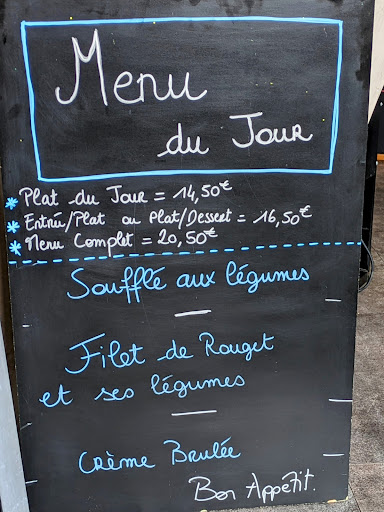 Menu
du Jour
* Plat du Jour = 14,50€
* Entrée/Plat ou Plat/Dessert = 16,50€
* Menu Complet = 20,50€
Soufflé aux légumes
Filet de Rouget
et ses légumes
Crème Brulée
Bon Appétit.